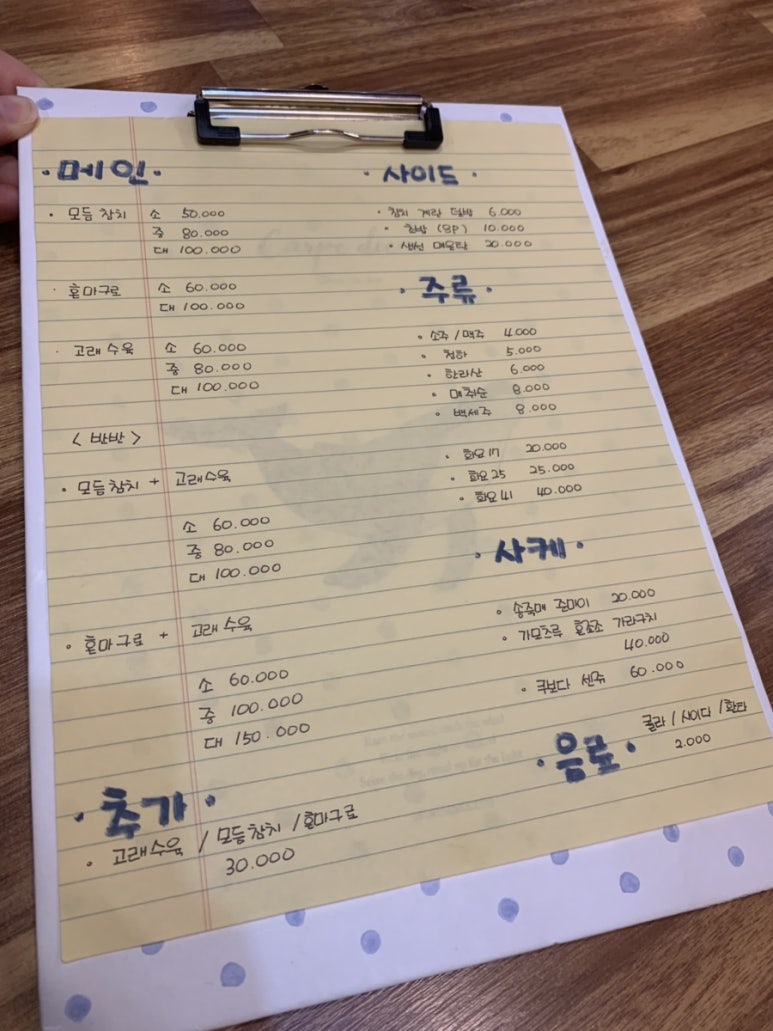 · 메인 ·
· 모듬 참치 소 50.000
중 80.000
대 100.000
· 혼마구로 소 60.000
대 100.000
· 고래 수육 소 60.000
중 80.000
대 100.000
< 반반 >
· 모듬참치 + 고래수육
소 60.000
중 80.000
대 100.000
· 혼마구로 + 고래수육
소 60.000
중 100.000
대 150.000
· 추가 ·
· 고래수육 / 모듬참치 / 혼마구로
30.000
· 사이드 ·
· 참치 계란 덮밥 6.000
· 초밥 (8P) 10.000
· 생선 매운탕 20.000
· 주류 ·
· 소주 / 맥주 4.000
· 청하 5.000
· 한라산 6.000
· 매취순 8.000
· 백세주 8.000
· 화요 17 20.000
· 화요 25 25.000
· 화요 41 40.000
· 사케 ·
· 송죽매 준마이 20.000
· 가모츠루 혼죠조 가라구치
40.000
· 쿠보다 센쥬 60.000
· 음료 · 콜라 / 사이다 / 환타
2.000